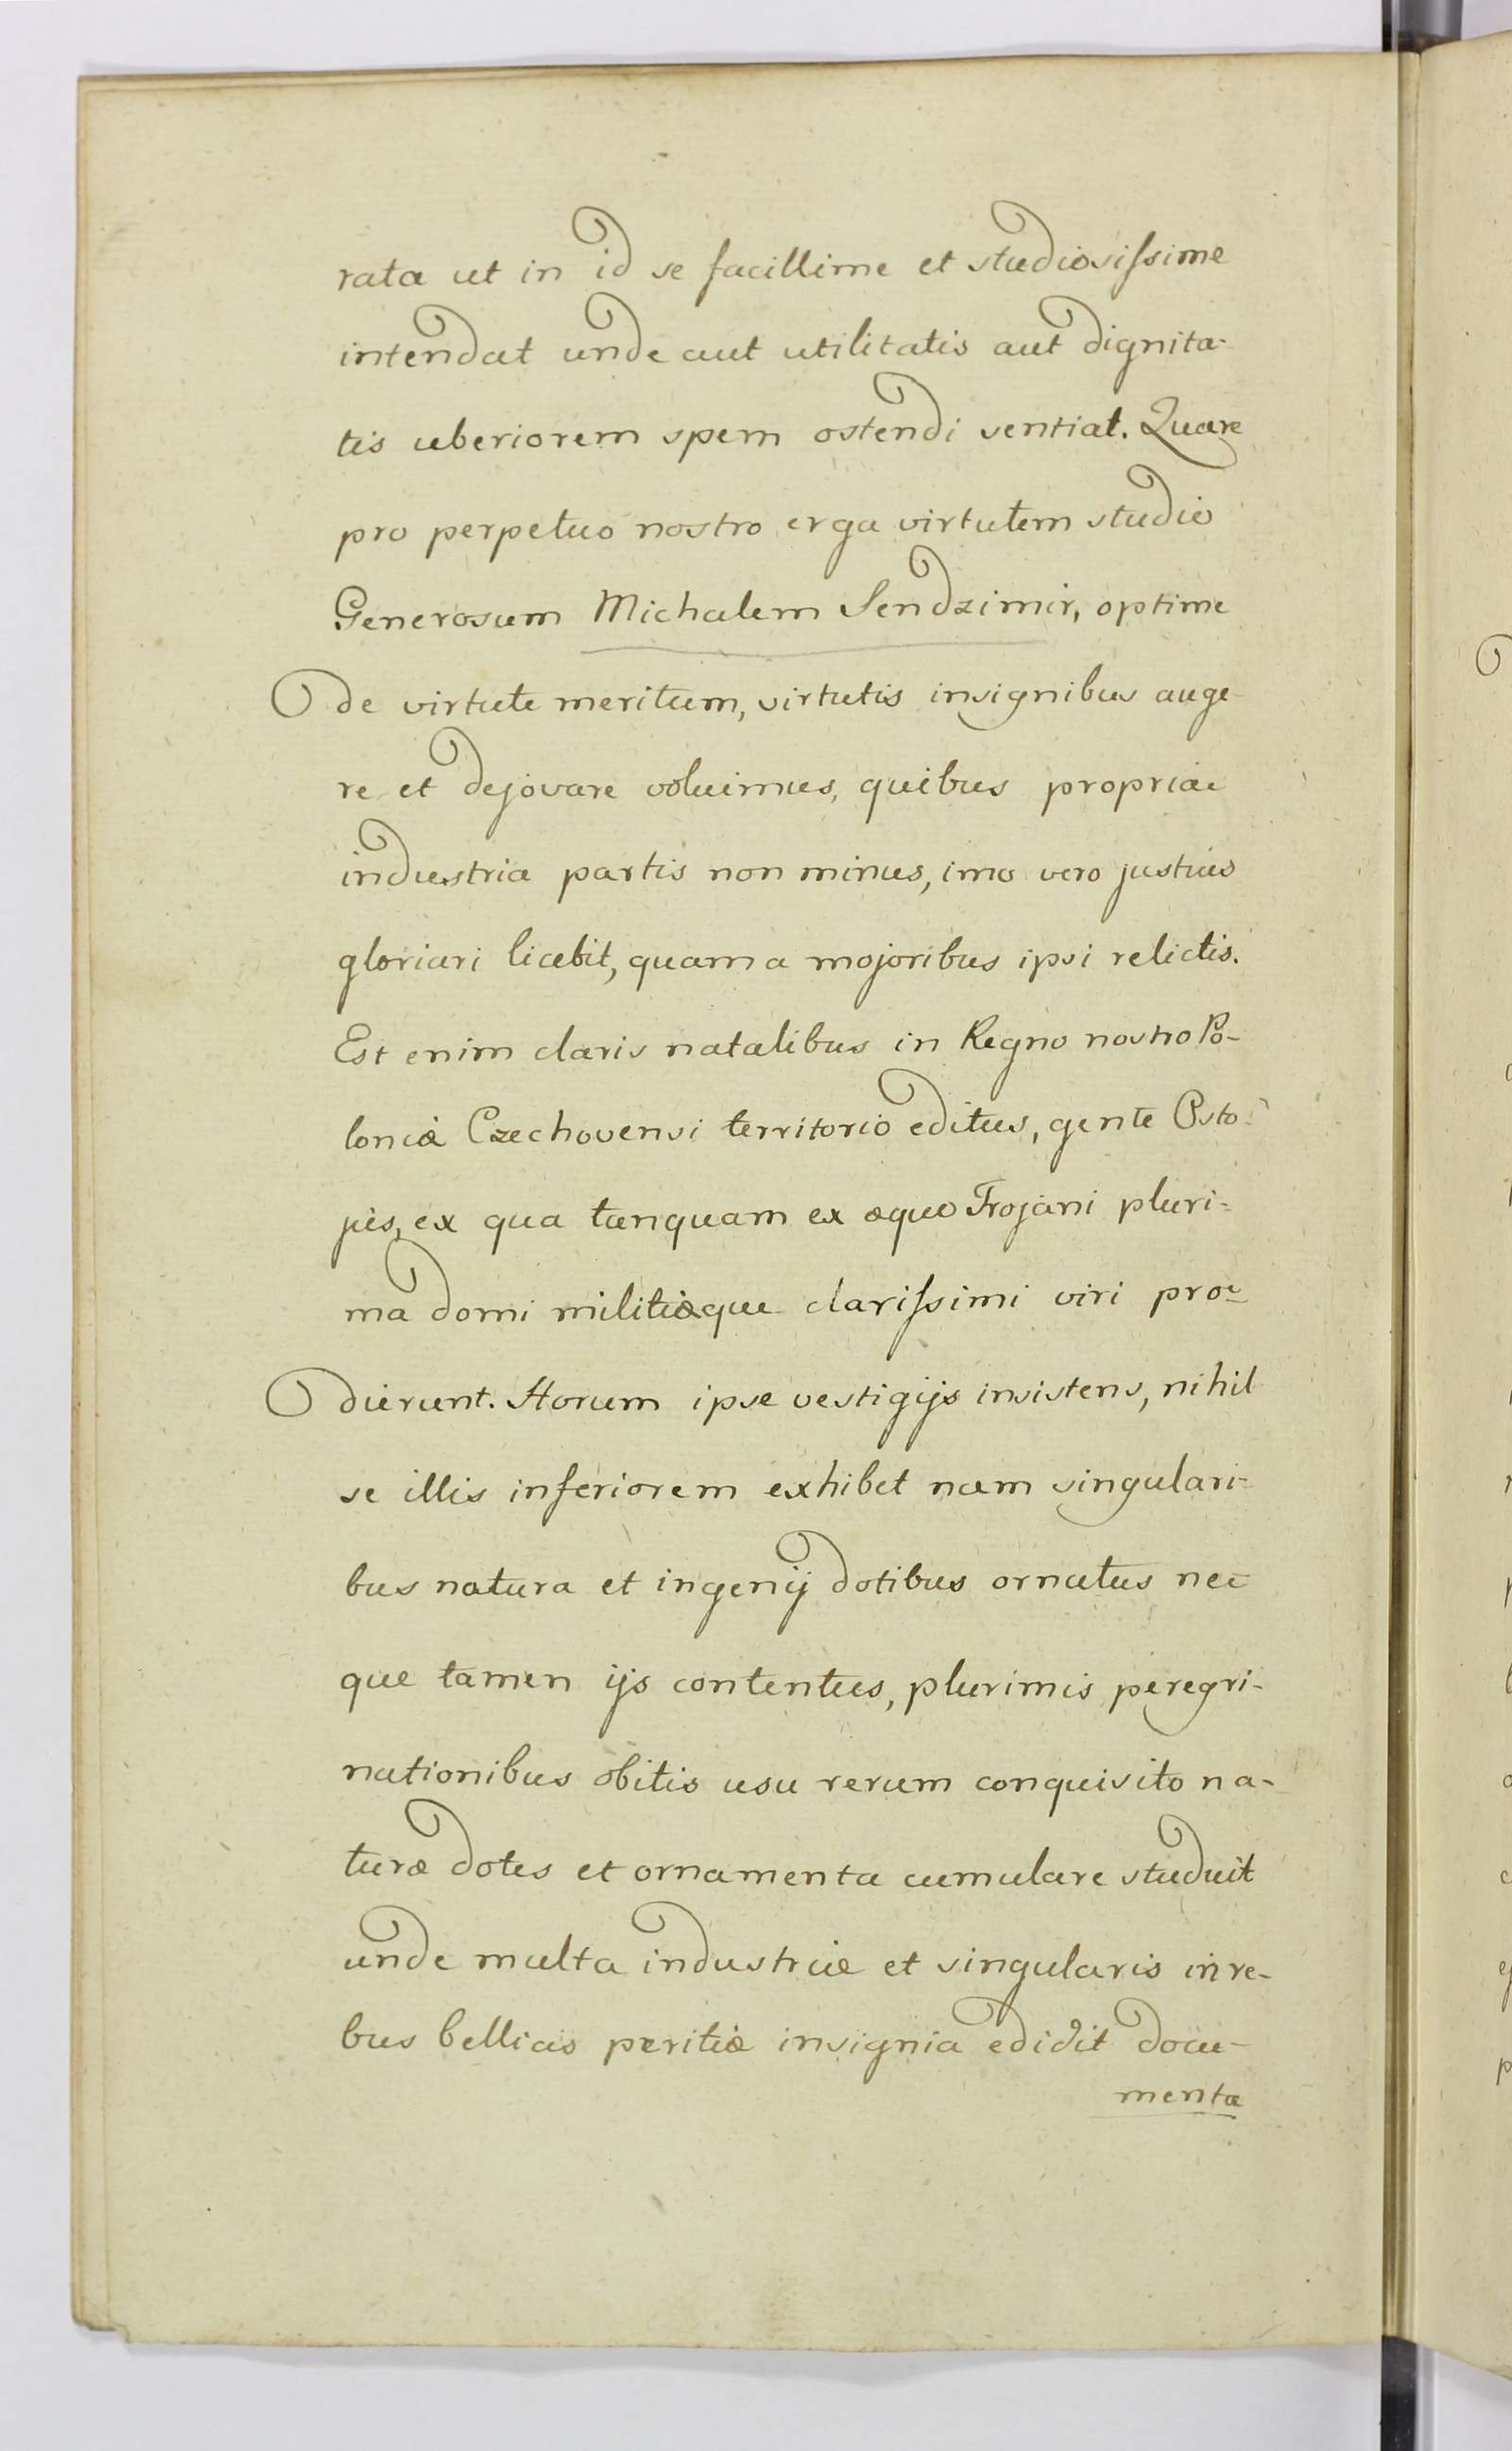 rata ut in id se facillime et studiosiſsime
intendat unde aut utilitatis aut dignita-
tis uberiorem spem ostendi sentiat. Quare
pro perpetuo nostro erga virtutem studio
Generosum Michalem Sendzimir, optime
de virtute meritum, virtutis insignibus auge-
re et dejovare voluimus, quibus propriae
industria partis non minus, imo vero justius
gloriari licebit, quam a mojoribus ipsi relictis.
Est enim claris natalibus in Regno nostro Po-
loniæ Czechovensi territorio editus, gente Osto-
jus, ex qua tanquam ex æquo Trojani pluri=
ma domi militiæque clariſsimi viri pro=
dierunt. Horum ipse vestigijs insistens, nihil
se illis inferiorem exhibet nam singulari=
bus natura et ingenij dotibus ornatus ne=
que tamen ijs contentus, plurimis peregri-
nationibus obitis usu rerum conquisito na-
turæ dotes et ornamenta cumulare studuit
unde multa industriæ et singularis in re-
bus bellicis peritiæ insignia edidit docu-
menta